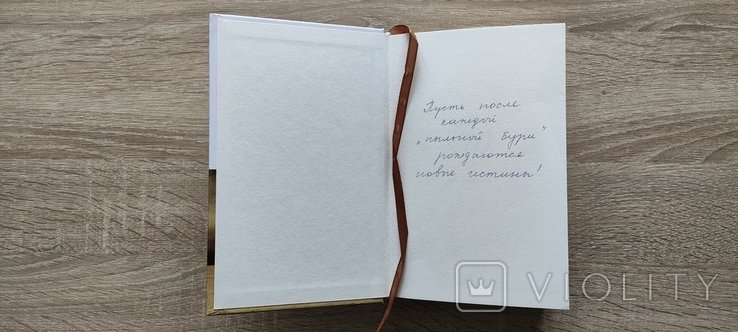 Пусть после
каждой
„пыльной бури"
рождаются
новые истины!
VIOLITY